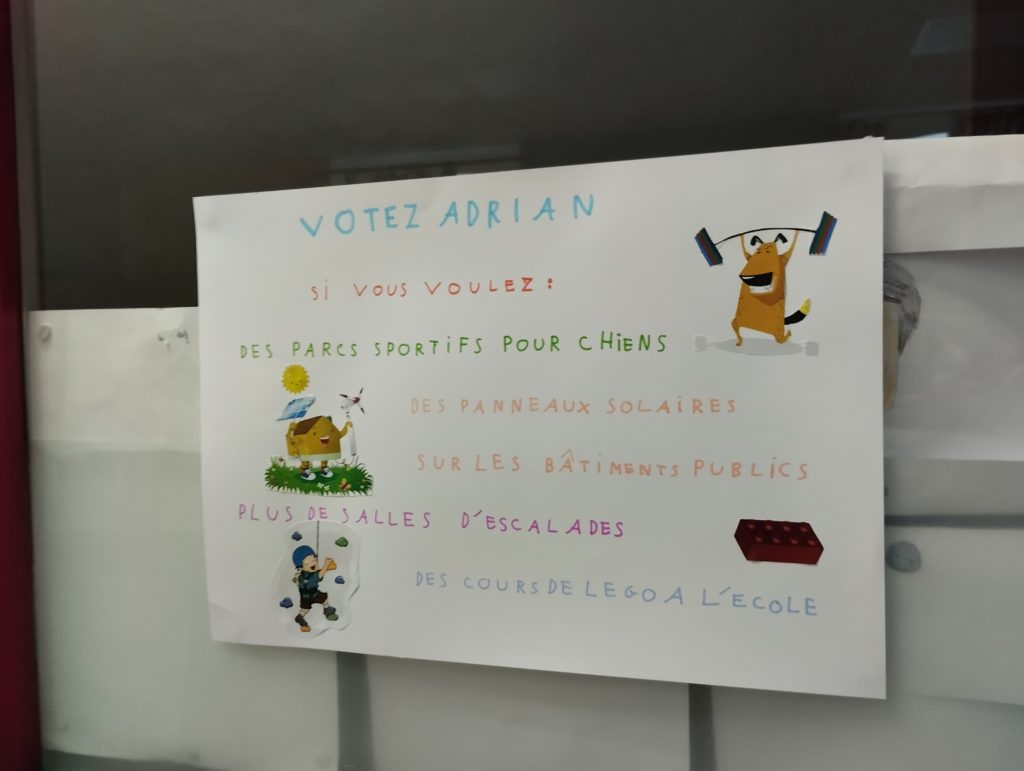 VOTEZ ADRIAN
Si VOUS VOULEZ :
DES PARCS SPORTIFS POUR CHIENS
DES PANNEAUX SOLAIRES
SUR LES BÂTIMENTS PUBLICS
PLUS DE SALLES D'ESCALADES
DES COURS DE LEGO A L'ECOLE